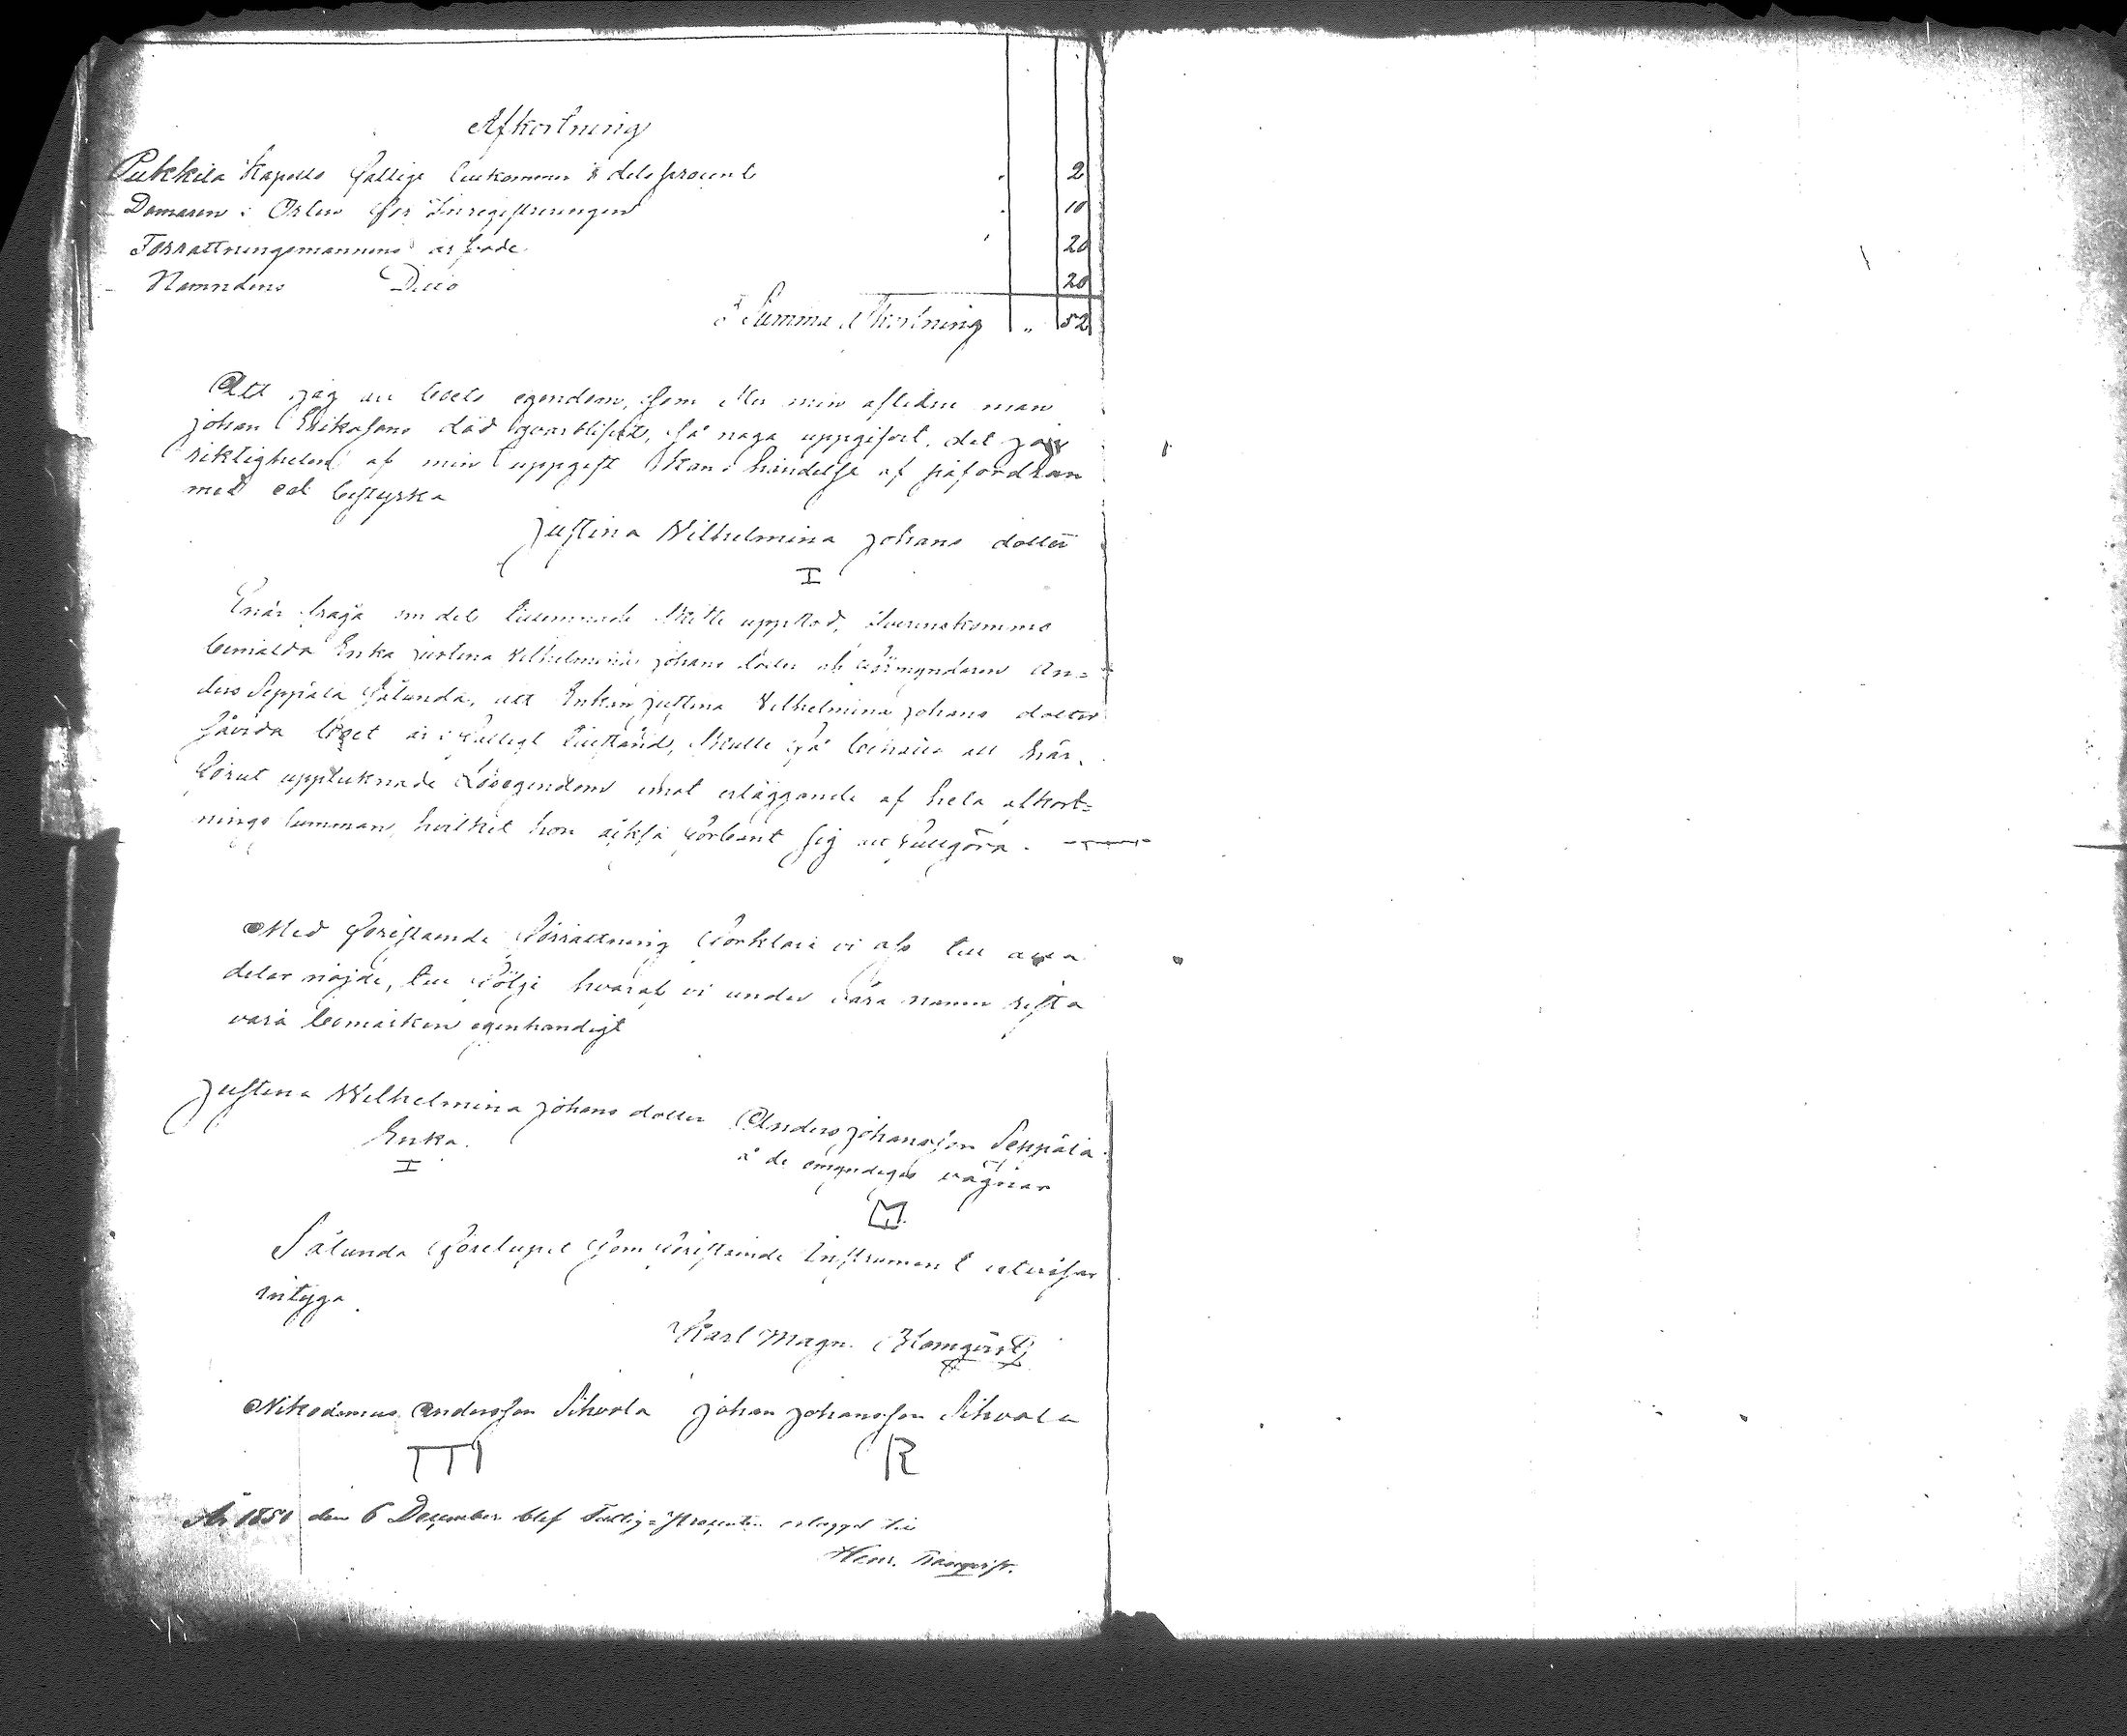 Afkortning
Pukkila Kapells fattige tillkommer dels procent " 2
Domaren i Orten för Inregistreringen " 10
Förrättningsmannens arfvode " 20
Nämndens Dito 20
Summa Afkortning " 52
Att jag all lösts egendom, som efter min aflidne man
johan Eriksons död qvarblifvit, så noga uppgifvit, det jag
riktigheten af min uppgift kan i händelse af påfordran
med ed bestyrka
Justina Wilhelmina johans dotter
I
Enär fråga om det tillämnade skifte uppstod, öfverenskommo
bemälda Enka justina Wilhelmina johans dotter och förmyndaren An=
ders Seppälä sålunda, att Enkan justina Wilhelmina johans dotter
såvida boet är i fattigt tillstånd, skulle få behålla all här
förut uppteknade Lösegendom emot erläggande af hela afkort=
nings summan, hvilket hon åkså förbant sig att fullgöra.
Med förestående förrättning förklara vi oss till alla
delar nöjde, till följe hvaraf vi under våra namn rista
våra bomärken egenhändigt
Justina Wilhelmina johans dotter Anders johansson Seppälä
Enka. å de omyndigas vägnar
I
Sålunda förelupet som förestående Instrument utvisar
intyga
Karl Magn. Blomqvist
Nikodemus Andersson Sihvola johan johansson Sihvola
R
År 1851 den 6 December blef Fattig=Procenten erlaggd till
Henr.